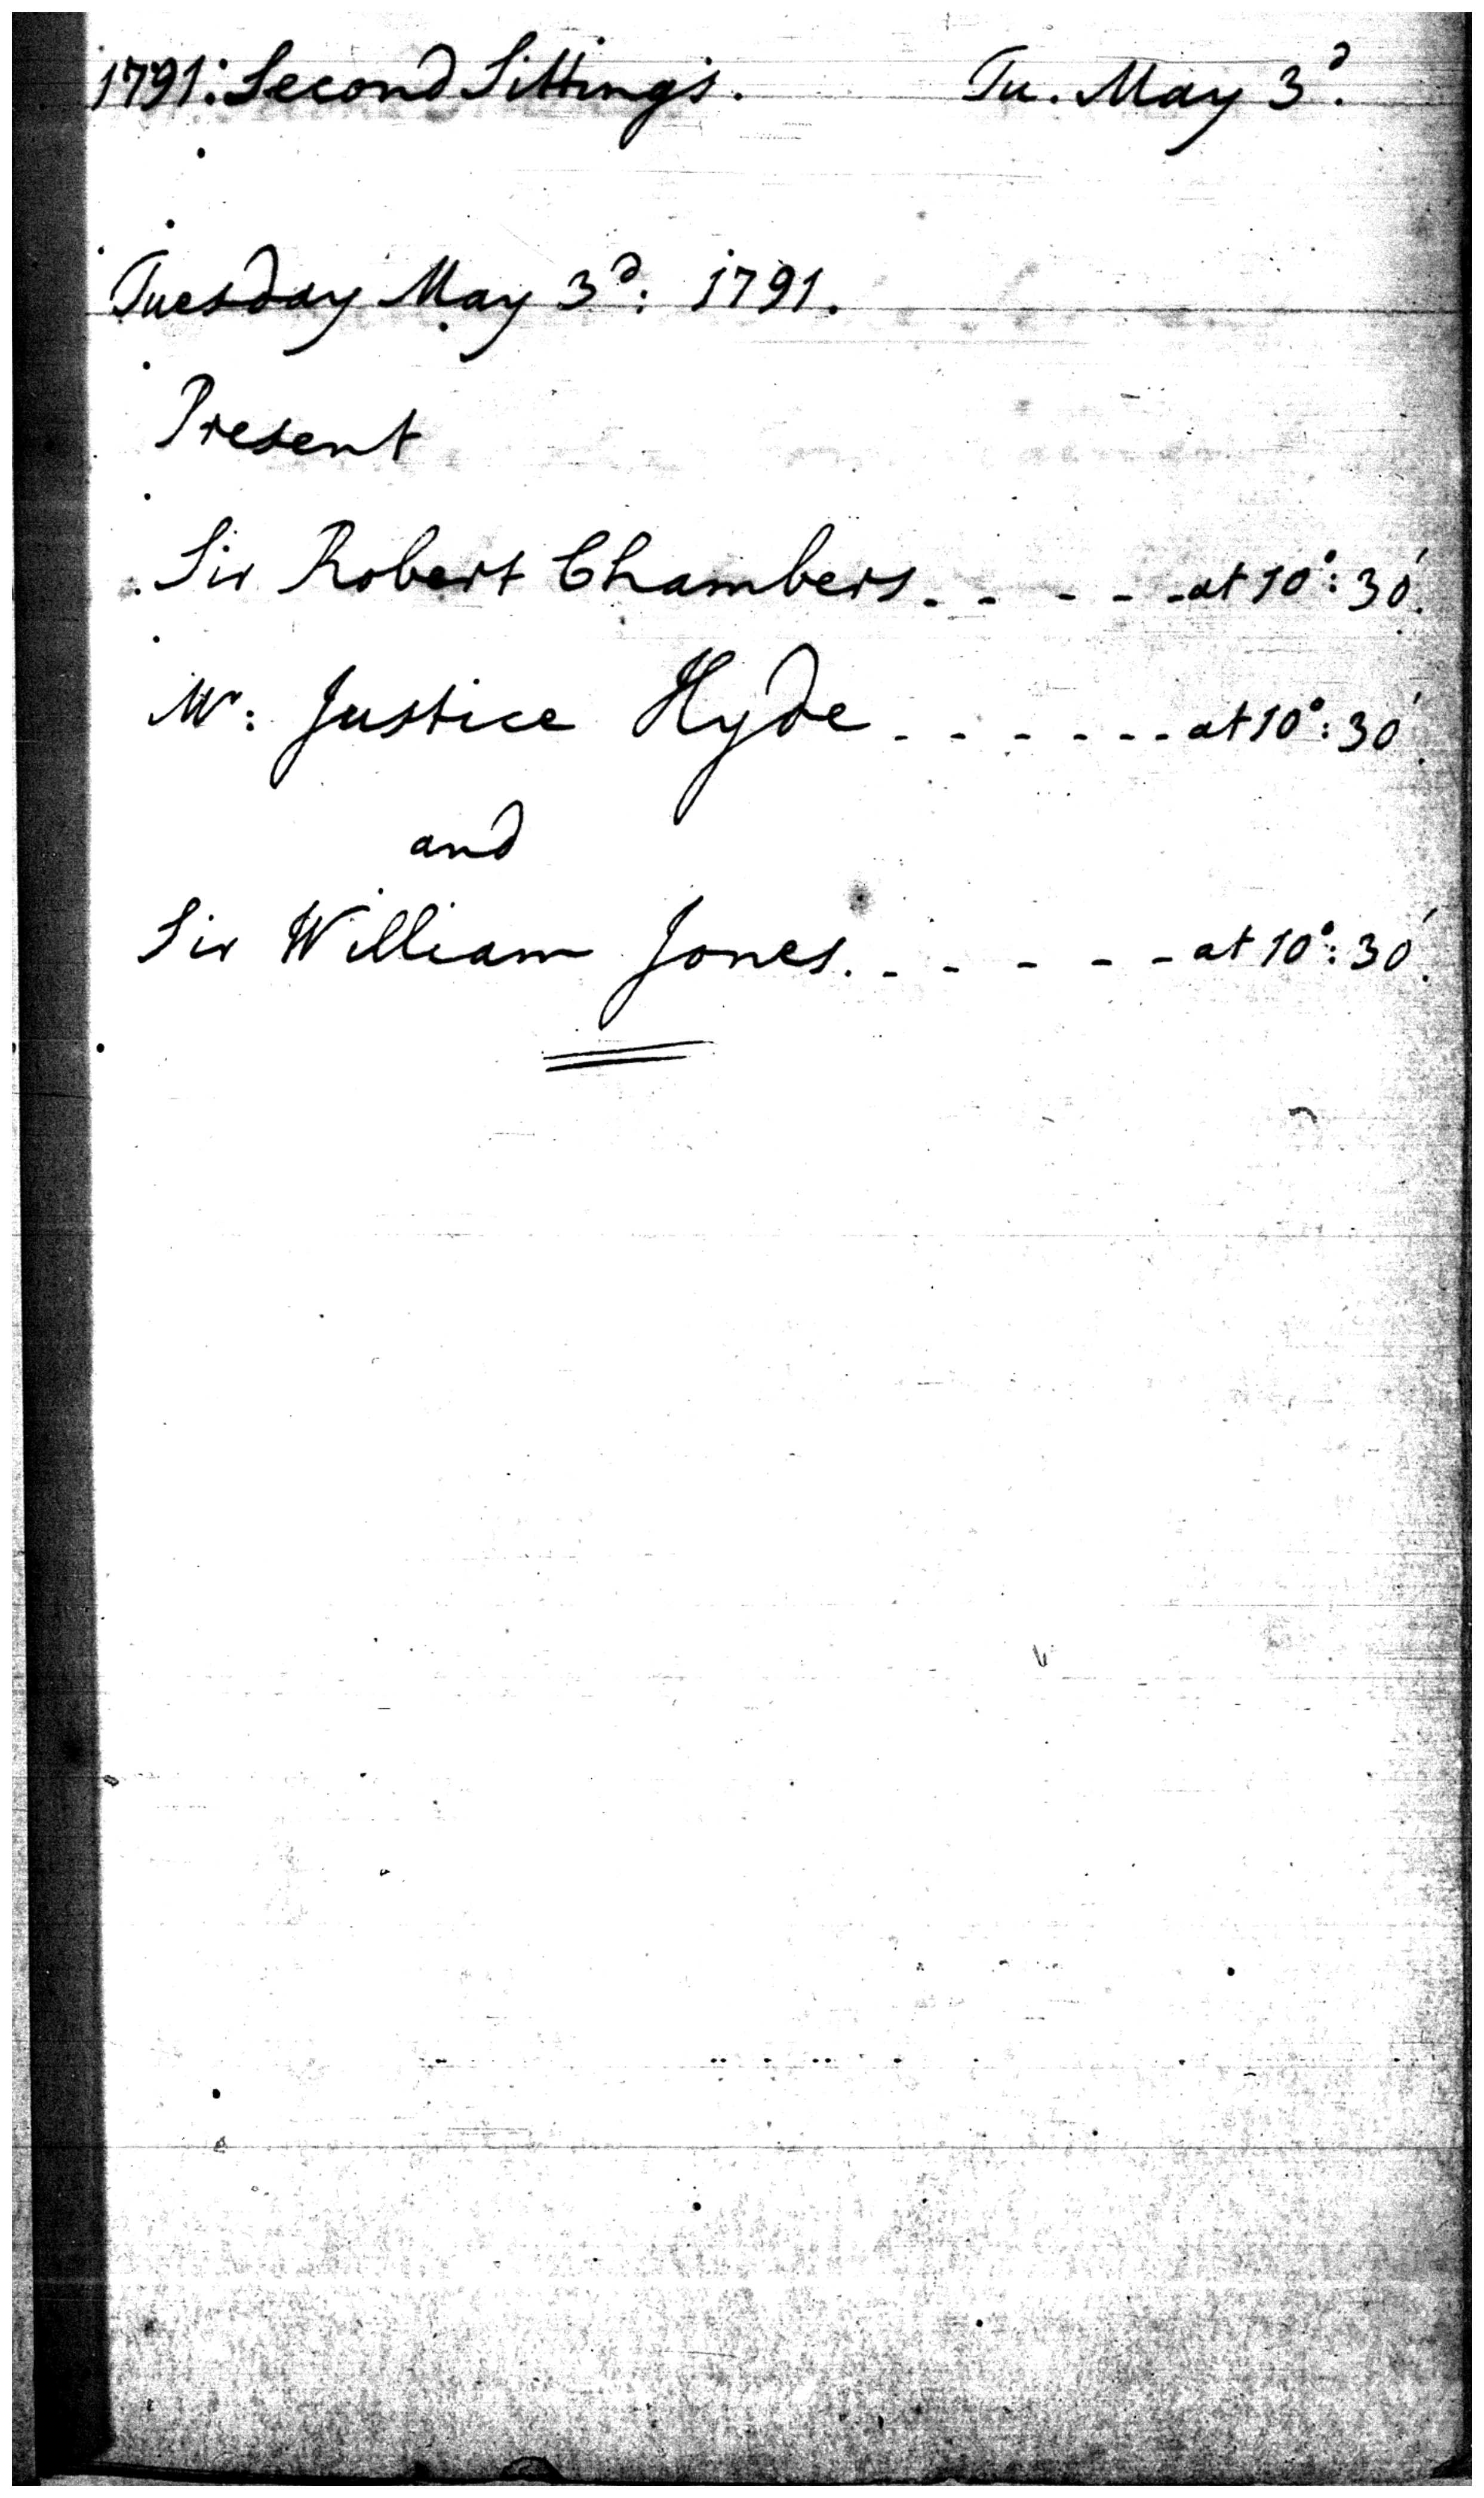 1791: Second Sittings. Tu. May 3d.
Tuesday May 3d: 1791.
Present
Sir Robert Chambers. - - - - at 10°: 30'.
Mr: Justice Hyde - - - - - - at 10°: 30'.
and
Sir William Jones. - - - - - at 10°: 30'.